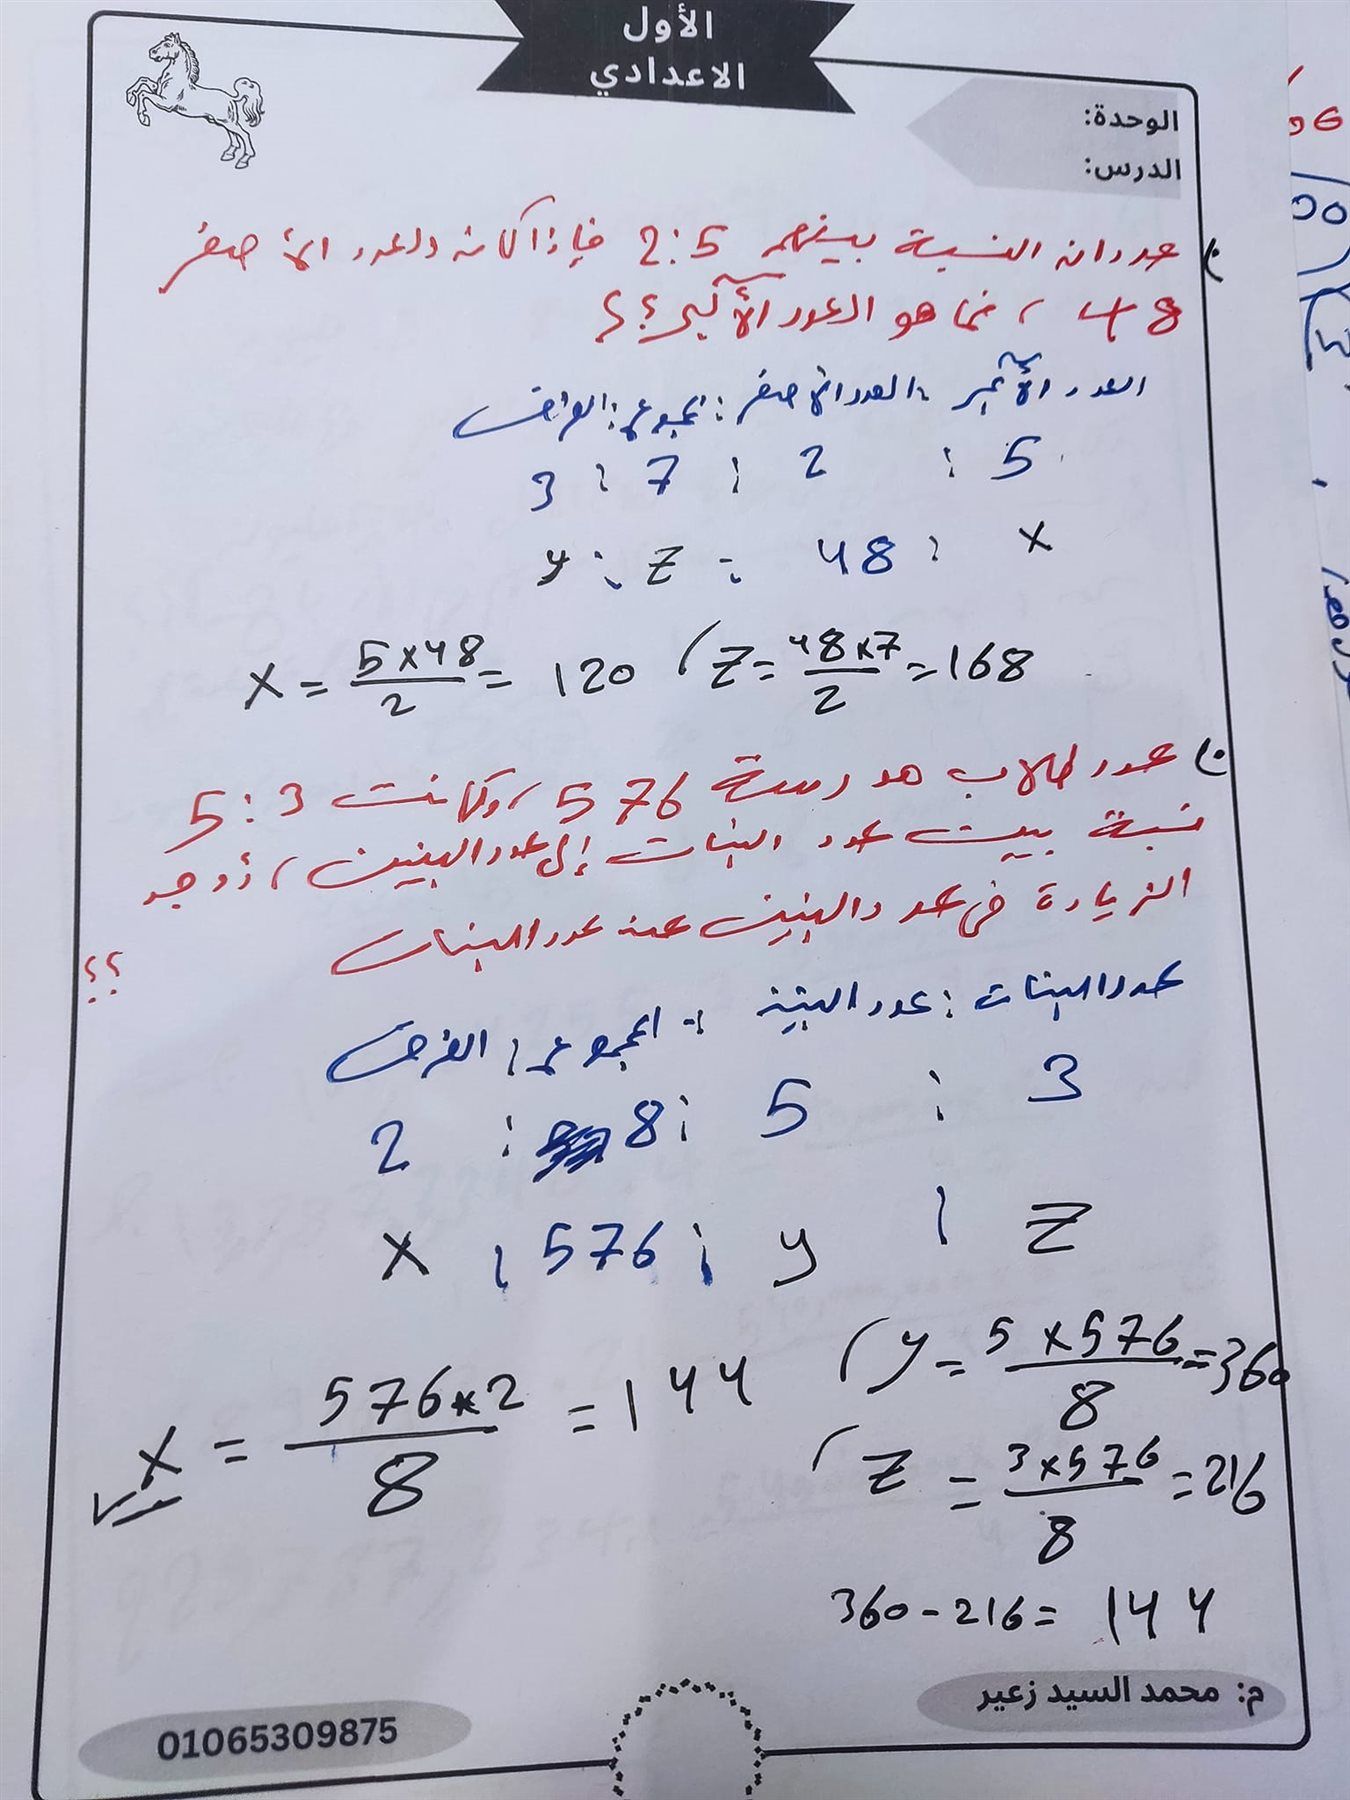 الأول
الاعدادي
الوحدة:
الدرس:
عددان النسبة بينهم 2:5 فإذا كان العدد الأصغر
48 ، فما هو العدد الأكبر؟؟
العدد الأكبر : العدد الأصغر : المجموع : الفرق
5 : 2 : 7 : 3
x : 48 : z : y
x = 5×48/2 = 120 ( z = 48×7/2 = 168
عدد طلاب مدرسة 576 ، وكانت 5:3
نسبة بين عدد البنات إلى عدد البنين ، أوجد
الزيادة في عدد البنين عن عدد البنات
؟؟
عدد البنات : عدد البنين : المجموع : الفرق
3 : 5 : 8 : 2
z : y : 576 : x
x = 576×2/8 = 144 ( y = 5×576/8 = 360
( z = 3×576/8 = 216
360 - 216 = 144
م: محمد السيد زعير
01065309875